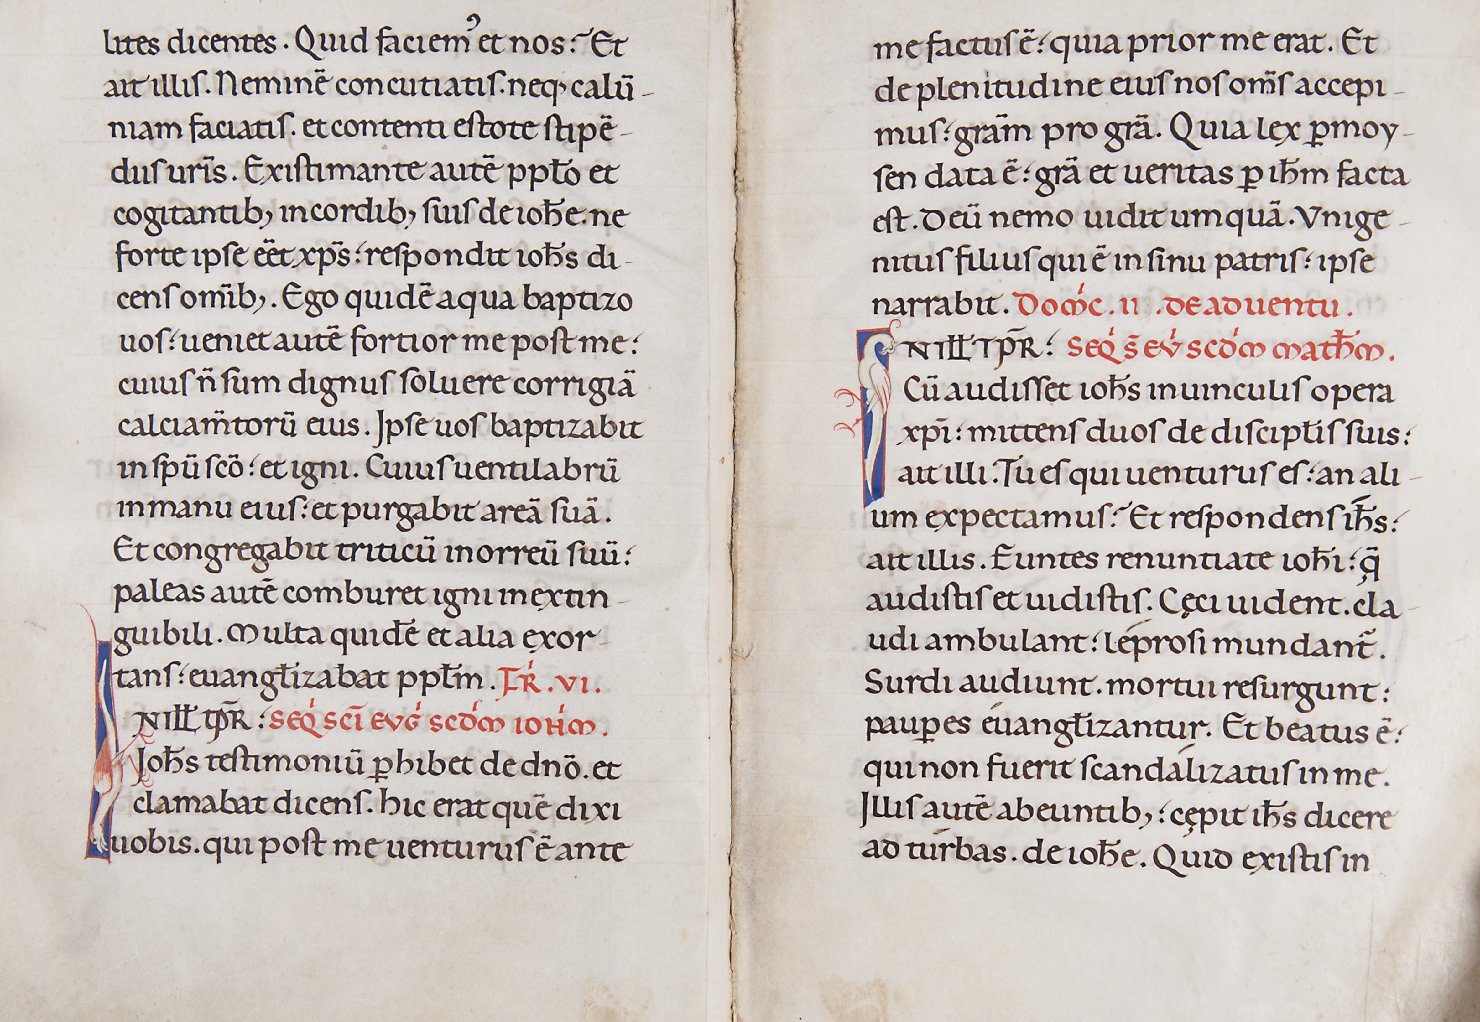 lites dicentes. Quid faciemꝰ et nos? Et
ait illis. Neminē concutiatis. neq; calū-
niam faciatis. et contenti estote stipē-
dus ur̄is. Existimante autē ppło et
cogitantib; in cordib; suis de ioħe. ne
forte ipse eēt xp̄s: respondit ioħs di-
cens om̄ib;. Ego quidē aqua baptizo
uos: ueniet autē fortior me post me:
cuius n̄ sum dignus soluere corrigiā
calciam̄torū eius. Ipse uos baptizabit
in sp̄u sc̄o: et igni. Cuius uentilabrū
in manu eius: et purgabit areā suā.
Et congregabit triticū in orreū suū:
paleas autē comburet igni inextin-
guibili. Multa quidē et alia exor-
tans: euangłizabat ppłm. FR̄. VI.
IN ILŁ TP̄R: SEQ̄ SCĪ EVḠ SCD̄M IOHM.
Ioħs testimoniū ꝑhibet de dn̄o. et
clamabat dicens. hic erat quē dixi
uobis. qui post me uenturus ē ante
me factus ē: quia prior me erat. Et
de plenitudine eius nos om̄s accepi-
mus: gram̄ pro grā. Quia lex ꝑ moy-
sen data ē: grā et ueritas ꝑ iħm facta
est. Deū nemo uidit umquā. Vnige-
nitus filius qui ē in sinu patris: ipse
narrabit. DOM̄C. II. DE ADVENTU.
IN ILŁ TP̄R: SEQ̄ S̄ EV̄ SCD̄M MATħM.
Cū audisset ioħs in uinculis opera
xp̄i: mittens duos de discipłis suis:
ait illi. Tu es qui uenturus es: an ali-
um expectamus? Et respondens iħs:
ait illis. Euntes renuntiate ioħi: q̄
audistis et uidistis. Cęci uident. cla-
udi ambulant: leprosi mundant̄.
Surdi audiunt. mortui resurgunt:
pauꝑes euangłizantur. Et beatus ē:
qui non fuerit scandalizatus in me.
Illis autē abeuntib;: cępit iħs dicere
ad turbas. de ioħe. Quid existis in